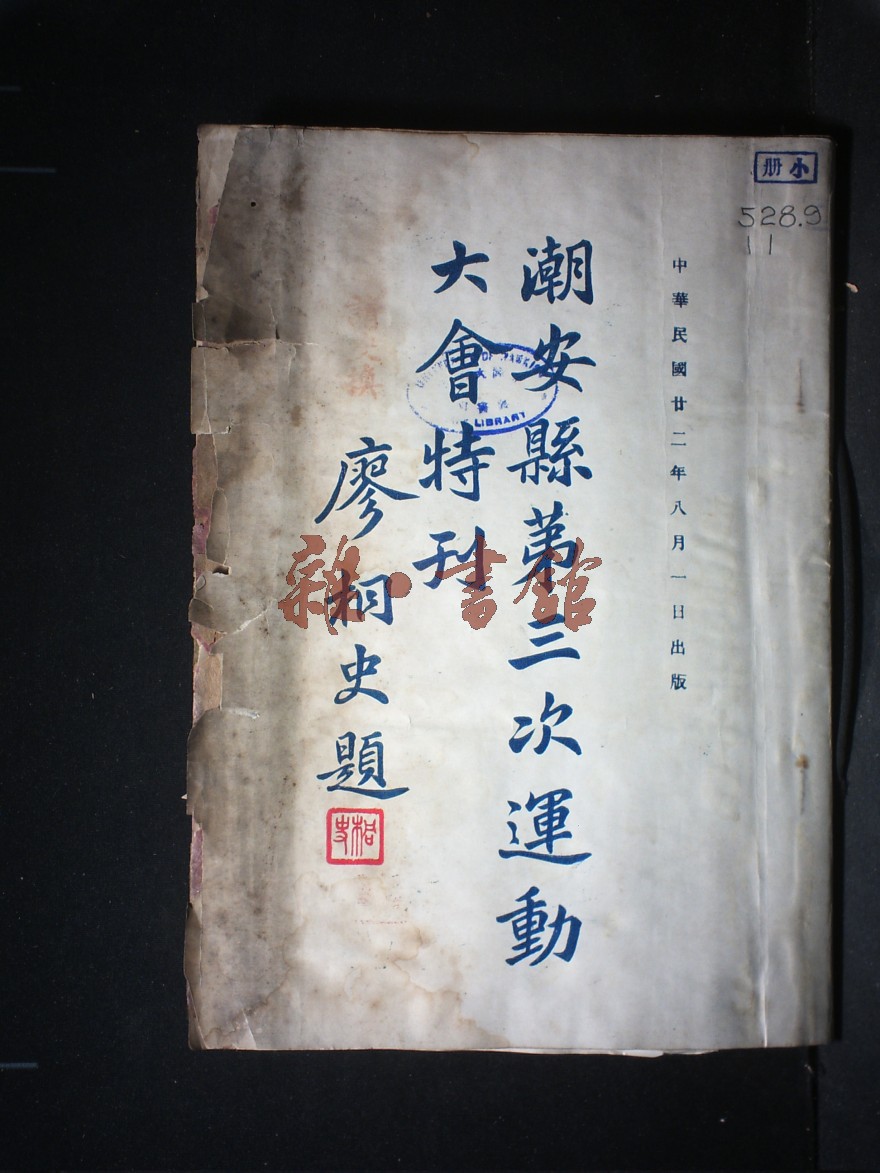 小册
528.9
11
中華民國廿二年八月一日出版
潮安縣第三次運動
大會特刊
廖桐史題
桐史
LIBRARY
雜·書館